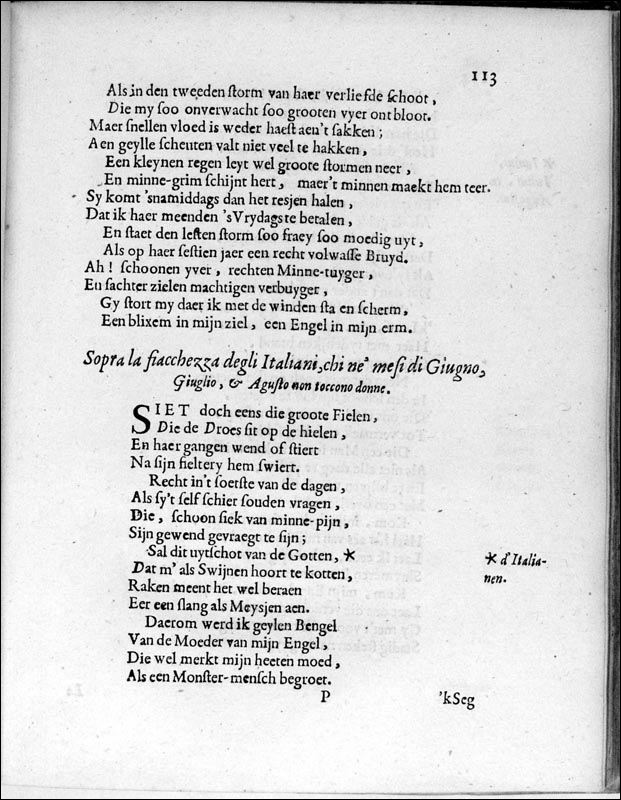 113
Als in den tweeden ſtorm van haer verliefde ſchoot,
Die my ſoo onverwacht ſoo grooten vyer ontbloot.
Maer ſnellen vloed is weder haeſt aen't ſakken;
Aen geylle ſcheuten valt niet veel te hakken,
Een kleynen regen leyt wel groote ſtormen neer,
En minne-grim ſchijnt hert, maer't minnen maekt hem teer.
Sy komt 'snamiddags dan het resjen halen,
Dat ik haer meenden 'sVrydags te betalen,
En ſtaet den leſten ſtorm ſoo fraey ſoo moedig uyt,
Als op haer ſeſtien jaer een recht volwaſſe Bruyd.
Ah! ſchoonen yver, rechten Minne-tuyger,
En ſachter zielen machtigen verbuyger,
Gy ſtort my daer ik met de winden ſta en ſcherm,
Een blixem in mijn ziel, een Engel in mijn erm.
Sopra la fiacchezza degli Italiani, chi ne' meſi di Giugno,
Giuglio, & Aguſto non toccono donne.
SIET doch eens die groote Fielen,
Die de Droes ſit op de hielen,
En haer gangen wend of ſtiert
Na ſijn fieltery hem ſwiert.
Recht in't ſoetſte van de dagen,
Als ſy't ſelf ſchier ſouden vragen,
Die, ſchoon ſiek van minne-pijn,
Sijn gewend gevraegt te ſijn;
Sal dit uytſchot van de Gotten, *
* d'Italia-
nen.
Dat m' als Swijnen hoort te kotten,
Raken meent het wel beraen
Eer een ſlang als Meysjen aen.
Daerom werd ik geylen Bengel
Van de Moeder van mijn Engel,
Die wel merkt mijn heeten moed,
Als een Monſter-menſch begroet.
P
'kSeg